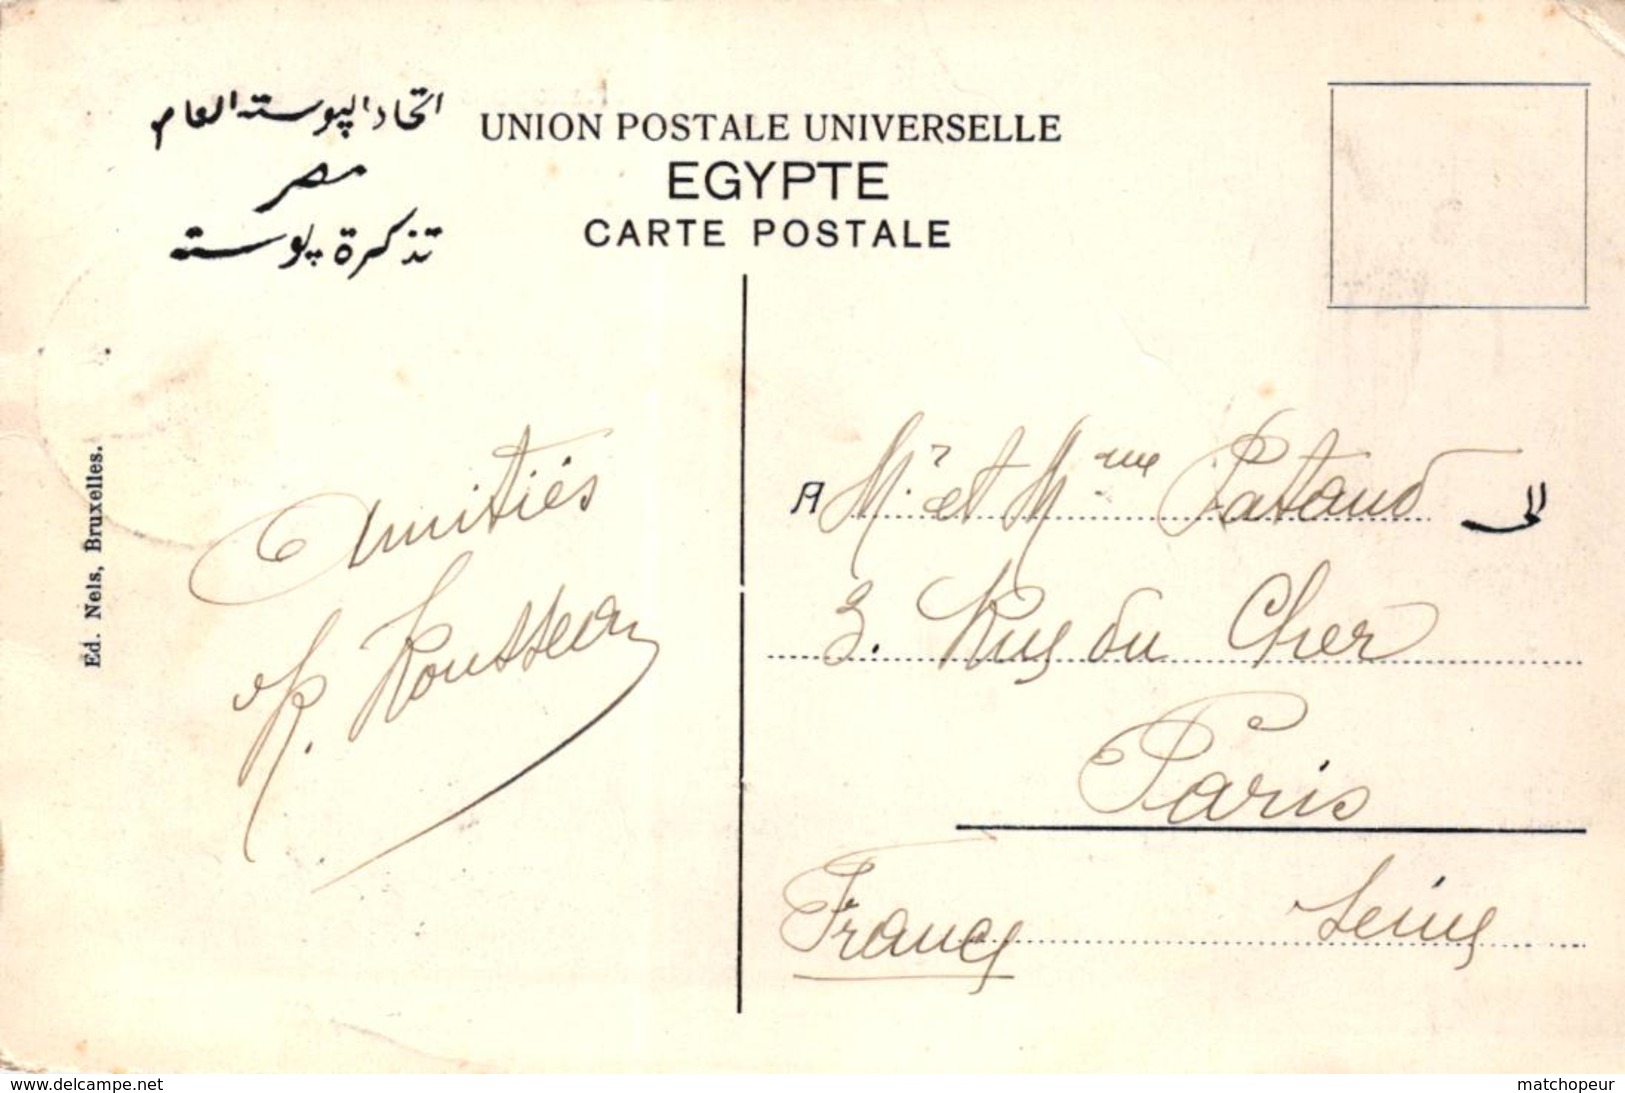 اتحاد الپوسته العام
مصر
تذكرة پوسته
UNION POSTALE UNIVERSELLE
EGYPTE
CARTE POSTALE
Ed. Nels, Bruxelles.
Amitiés
R. Rousseau
A Mr. et Mme Pataud الى
3. Rue du Cher
Paris
France Seine
www.delcampe.net
matchopeur